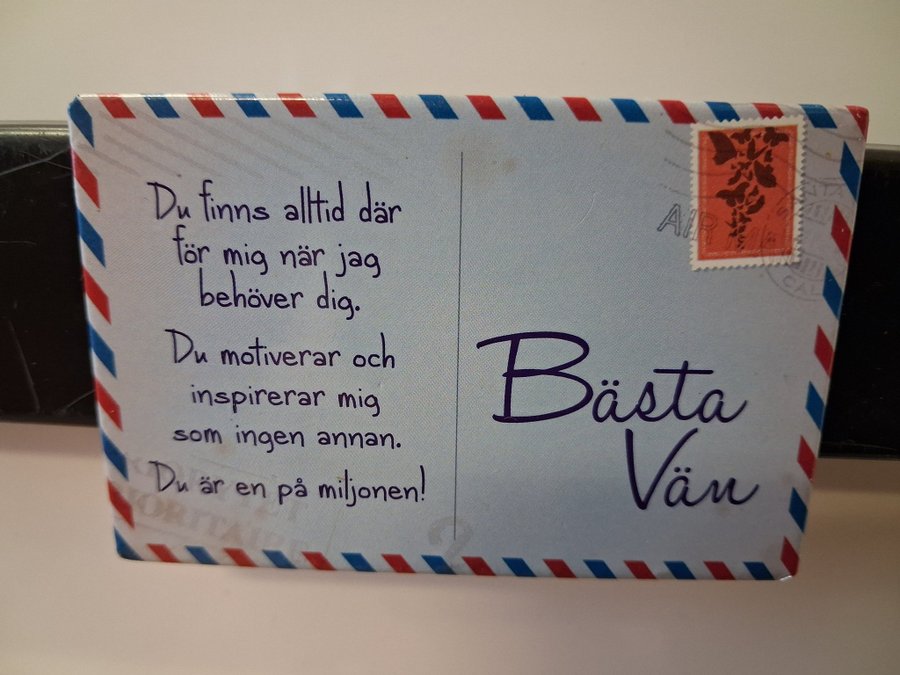 Du finns alltid där
för mig när jag
behöver dig.
Du motiverar och
inspirerar mig
som ingen annan.
Du är en på miljonen!
AIR
Bästa
Vän